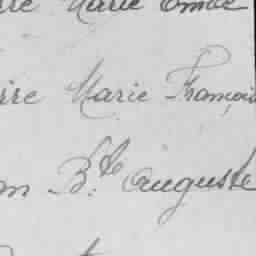 Marie Emile
Marie François
Bte Auguste